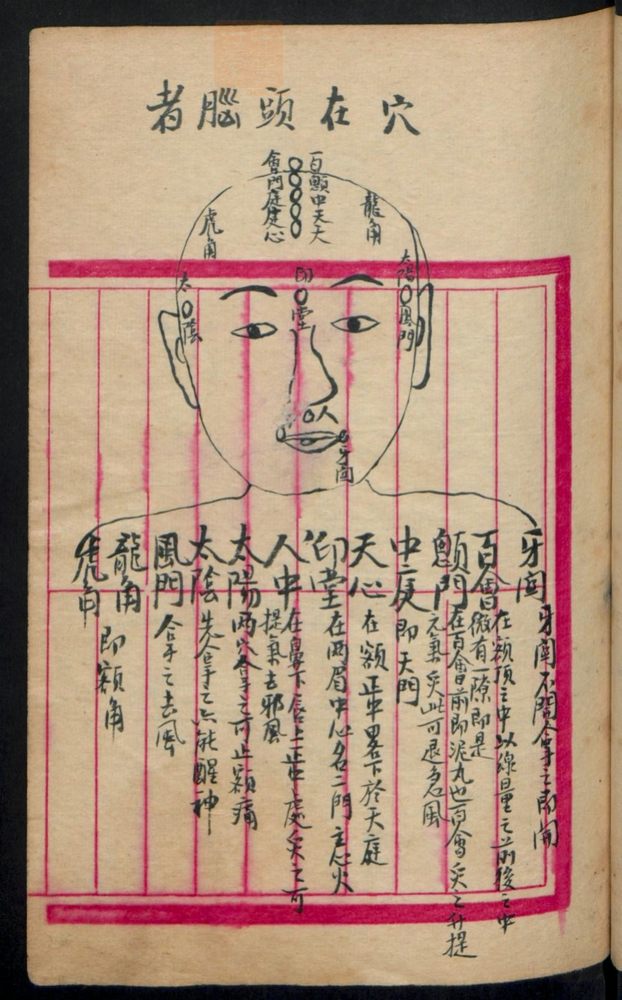 穴在頭腦者
百顱中天天
會門庭庭心
龍角
虎角
太陽
風門
太陰
印堂
人
牙関
牙関 牙関不開拿之即開
百會 在額頂之中以線量之前後之中
微有一隙即是
顖門 在百會前即泥丸也百會灸之升提
元氣灸此可退急風
中庭 即天門
天心 在額正中畧下於天庭
印堂 在两眉中心名二門主心火
人中 在鼻下唇上正處灸之可
提氣去邪風
太陽 两穴合拿之可止額痛
太陰 先拿之亦能醒神
風門 合拿之去風
龍角
虎角 即額角